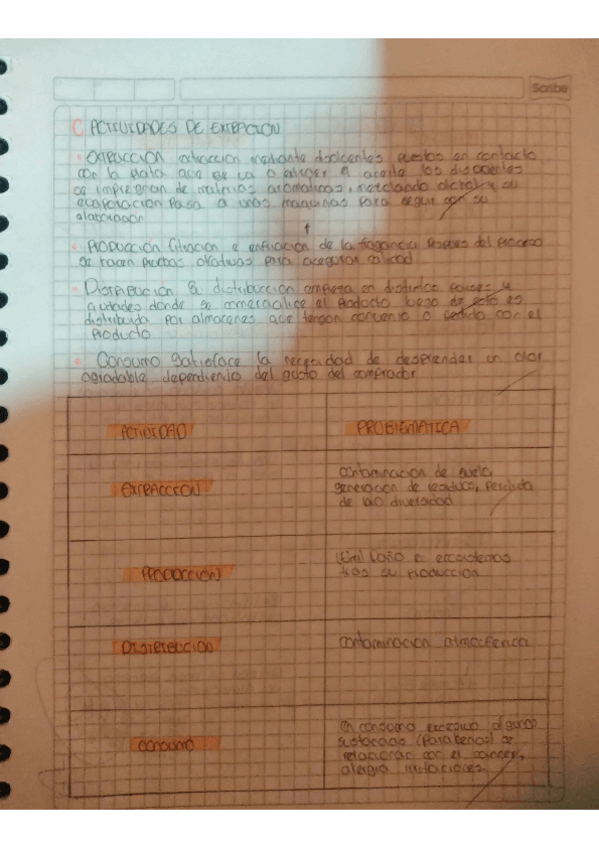 Scribe
C. ACTIVIDADES DE EXTRACCION
• EXTRACCIÓN extraccion mediante disolventes puestos en contacto
con la mata que se va a extraer el aceite los disolventes
se impregnan de materias aromaticas, mezclando alcohol y su
evaporación pasa a unas maquinas para seguir con su
elaboracion
• PRODUCCIÓN filtracion e enfriacion de la fragancia despues del proceso
se hacen pruebas olfativas para acegurar calidad
• DISTRIBUCION La distribuccion empieza en distintos paises y
ciudades donde se comercialice el producto luego de esto es
distribuida por almacenes que tengan convenio o pedido con el
producto
• CONSUMO Satisface la necesidad de desprender un olor
agradable dependiento del gusto del comprador
ACTIVIDAD PROBLEMATICA
EXTRACCION contaminacion de suelo,
generación de residuos, perdida
de bio diversidad
PRODUCCION Daño a ecosistemas
tras su produccion
DISTRIBUCION contaminacion atmosferica
CONSUMO En consumo excesivo algunas
sustancias (parabenos) se
relacionan con el cancer,
alergia irritaciones.